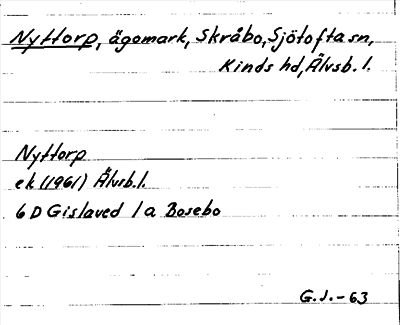 Nyttorp, ägomark, Skråbo, Sjötofta sn,
Kinds hd, Älvsb. l.
Nyttorp
ek (1961) Älvsb. l.
6 D Gislaved 1 a Bosebo
G. J. - 63